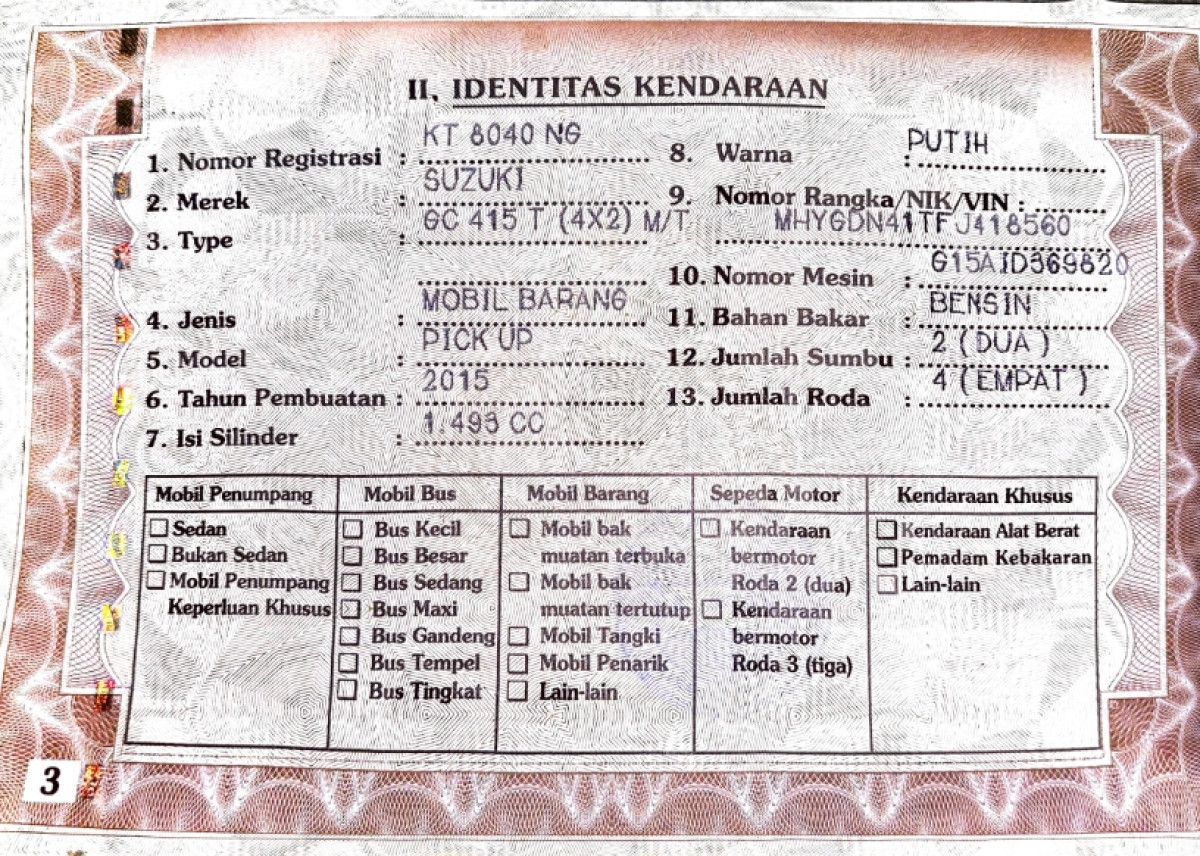 II. IDENTITAS KENDARAAN
1. Nomor Registrasi : KT 8040 NG
2. Merek : SUZUKI
3. Type : GC 415 T (4X2) M/T
4. Jenis : MOBIL BARANG
5. Model : PICK UP
6. Tahun Pembuatan : 2015
7. Isi Silinder : 1.493 CC
8. Warna : PUTIH
9. Nomor Rangka/NIK/VIN :
MHYGDN41TFJ418560
10. Nomor Mesin : G15AID369820
11. Bahan Bakar : BENSIN
12. Jumlah Sumbu : 2 ( DUA )
13. Jumlah Roda : 4 ( EMPAT )
Mobil Penumpang
Sedan
Bukan Sedan
Mobil Penumpang
Keperluan Khusus
Mobil Bus
Bus Kecil
Bus Besar
Bus Sedang
Bus Maxi
Bus Gandeng
Bus Tempel
Bus Tingkat
Mobil Barang
Mobil bak
muatan terbuka
Mobil bak
muatan tertutup
Mobil Tangki
Mobil Penarik
Lain-lain
Sepeda Motor
Kendaraan
bermotor
Roda 2 (dua)
Kendaraan
bermotor
Roda 3 (tiga)
Kendaraan Khusus
Kendaraan Alat Berat
Pemadam Kebakaran
Lain-lain
3